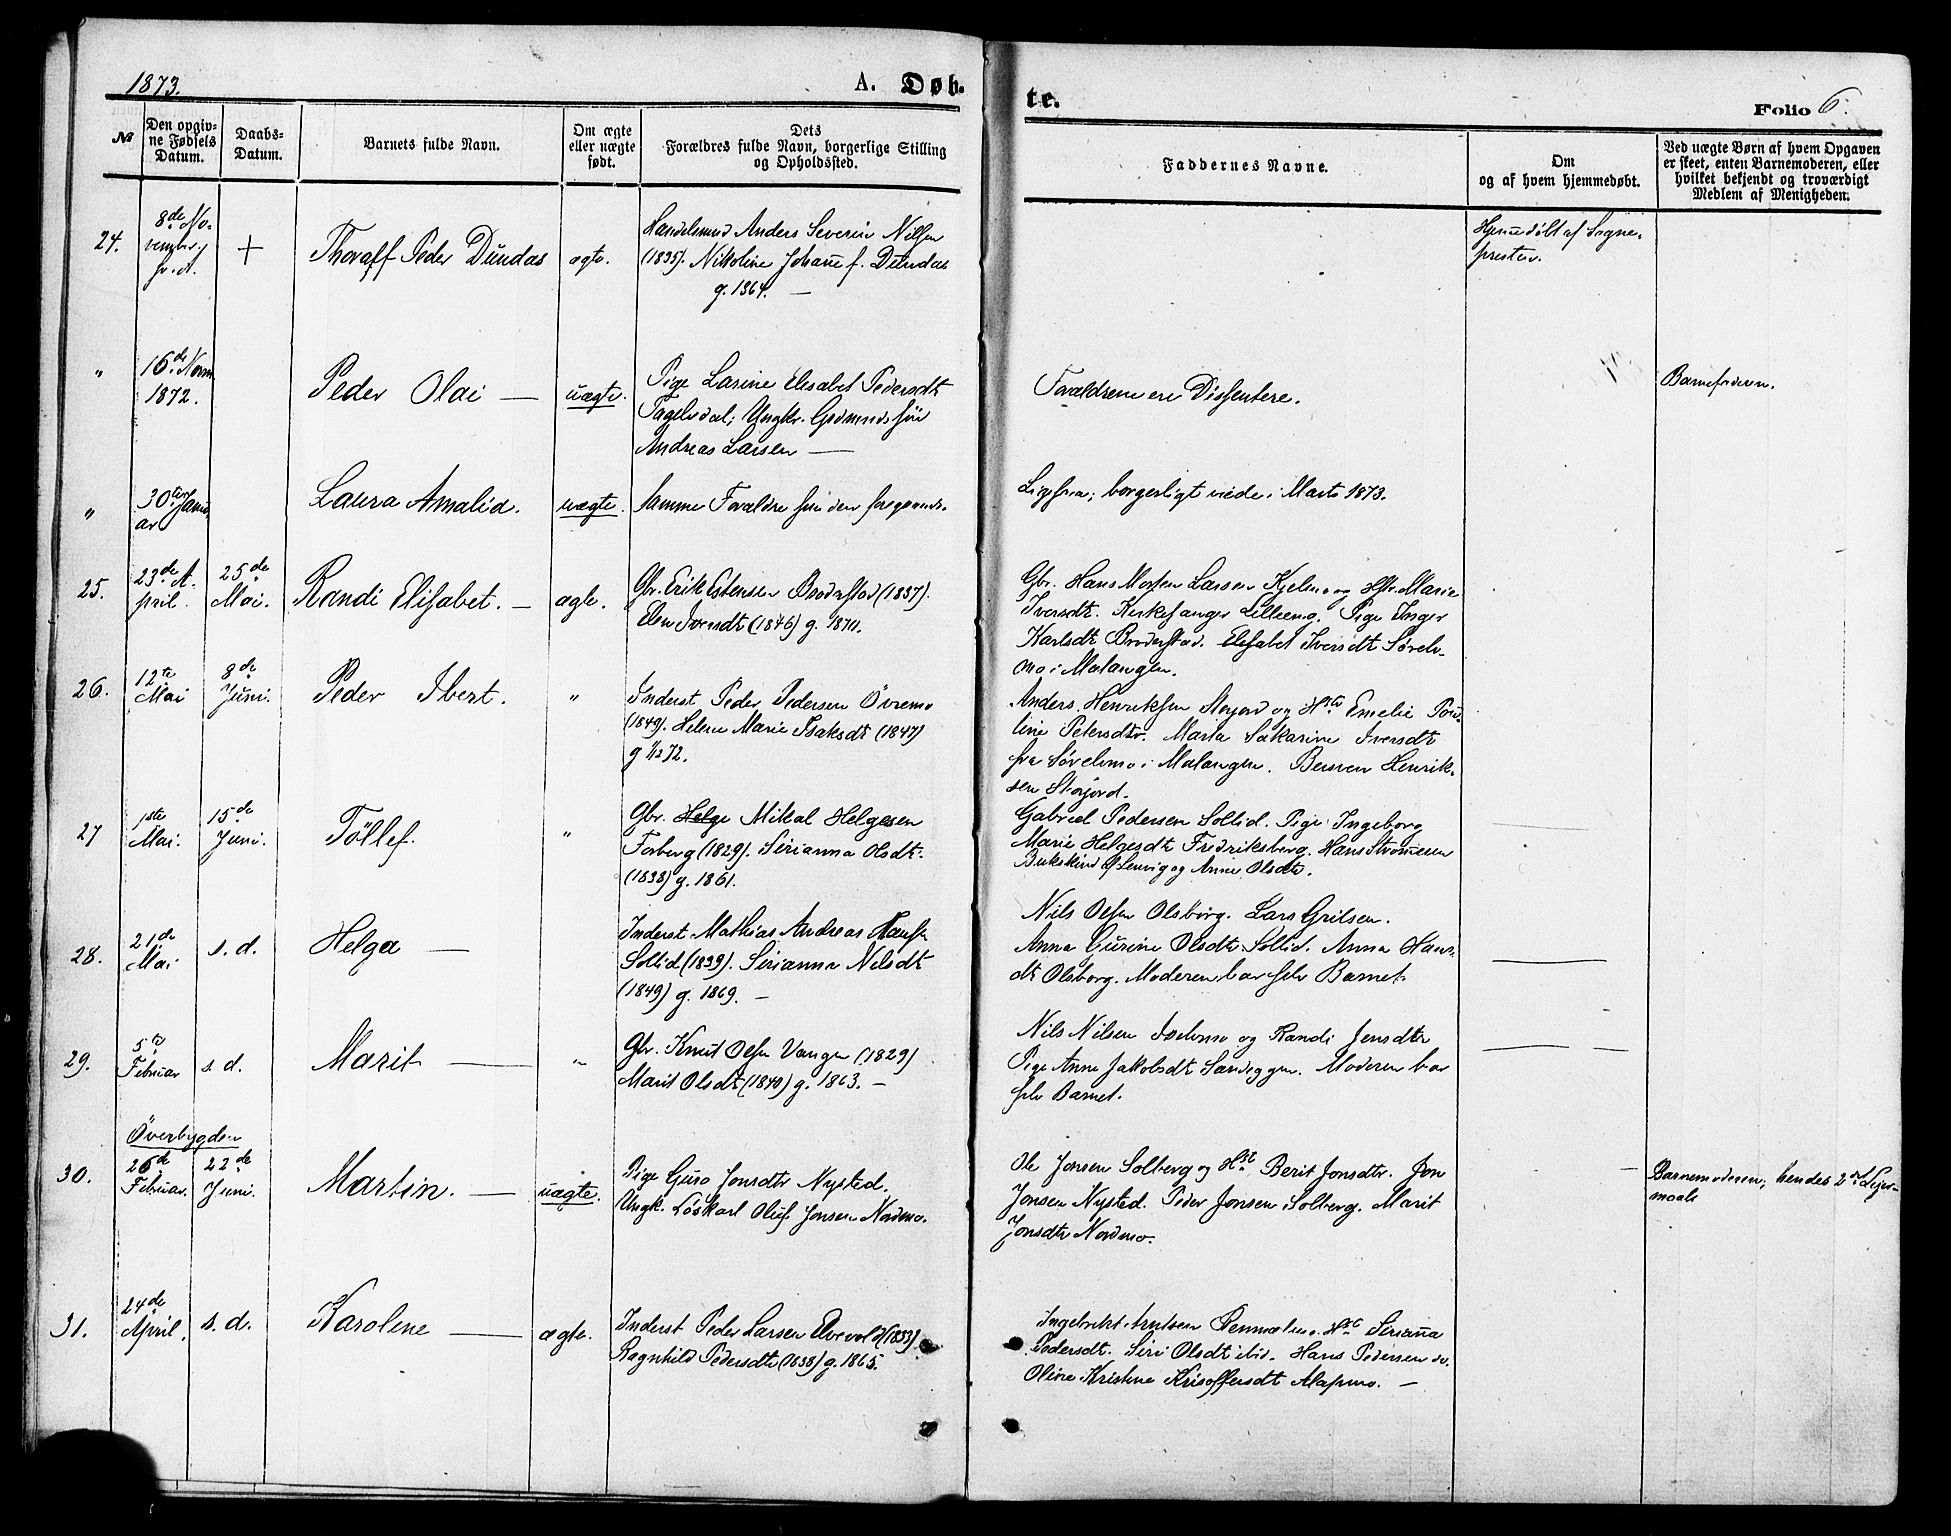 1873.
A. Døb-
te.
Folio 6.
№
Den opgiv-
ne Fødsels
Datum.
Daabs-
Datum.
Barnets fulde Navn.
Om ægte
eller uægte
født.
Dets
Forældres fulde Navn, borgerlige Stilling
og Opholdssted.
Faddernes Navne.
Om
og af hvem hjemmedøbt.
Ved uægte Børn af hvem Opgaven
er skeet, enten Barnemoderen, eller
hvilket bekjendt og troværdigt
Medlem af Menigheden.
24.
8de No-
vember
+
Peder Dundas
ægte.
Anders Severin Nilsen
(1835). Nikoline Johanne f. Dundas
g. 1864. —
Hjemmedøbt af Sogne-
presten.
"
16de Novem
1872.
Peder Olai —
uægte.
Pige Larine Elisabet Pedersdt
Andreas Larsen —
Forældrene ere Dissentere.
Barnefaderen.
"
30te Janu
ar
Laura Amalia.
uægte.
Samme Forældre
borgerligt viede i Marts 1873.
25.
23de A-
pril.
25de
Mai.
Randi Elisabet. —
ægte.
Gbr. Erik Estensen Broderstad (1837).
Elen Iversdt (1846) g. 1870.
Gbr. Hans Morten Larsen Kjelmo og Hstr. Marie
Iversdt. Kirkesanger Lilleeng. Pige Inger
Karlsdt Broderstad. Elisabet Iversdt Sørel-
mo i Malangen.
26.
12te
Mai
8de
Juni.
Peder Ibert.
"
Inderst Peder Pedersen Övremo
(1849). Helene Marie Isaksdt (1847)
72.
Anders Henriksen og Hst Emelie
line Petersdtr. Marta Sakarine Iversdt
fra Sørelmo i Malangen. Henrik-
sen Storjord.
27
1ste
Mai.
15de
Juni.
Töllef.
"
Gbr. Helge Mikal Helgesen
Forberg (1829). Serianna Olsdt.
(1838) g. 1861.
Gabriel Pedersen Sollid. Pige Ingeborg
Marie Helgesdt Fredriksberg. Hans Strømesen
Bukskind af Lenvig og Anne Olsdtr.
28.
21de
Mai
s. d.
Helga —
"
Inderst Mathias Andreas Hansen
Sollid (1839). Serianna Nilsdt
(1849) g. 1869. —
Nils Olsen Olsborg. Lars
Anna Gurine Olsdtr. Sollid. Anna Hans-
dt Olsborg. Moderen bar selv Barnet.
29.
5te
Februar
s. d.
Marit —
"
Gbr. Knut Olsen Vangen (1829)
Marit Olsdt (1840) g. 1863. —
Nils Nilsen og Randi Jensdtr
Pige Anne Jakobsdt Sandeggen. Moderen bar
selv Barnet.
Överbygden
30.
26de
Februar.
22de
Juni.
Martin. —
uægte.
Pige Guro Jonsdtr Nysted.
Ungk. Löskarl Oluf Jonsen Nordmo.
Ole Jonsen Solberg og Hst. Berit Jonsdtr. Jon
Jonsen Nysted. Peder Jonsen Solberg. Marit
Jonsdtr Nordmo.
Barnemoderen; hendes 2det Leier-
maal
31.
24de
April.
s. d.
Karolene —
ægte.
Inderst Peder Larsen Elvevold (1833).
Ragnhild Pedersdtr (1838) g. 1865.
Ingebrikt Arntsen Hst Serianna
Pedersdt. Siri Olsdt ibid. Hans Pedersen
Oline Kristine Kristoffersdt Alapmo. —